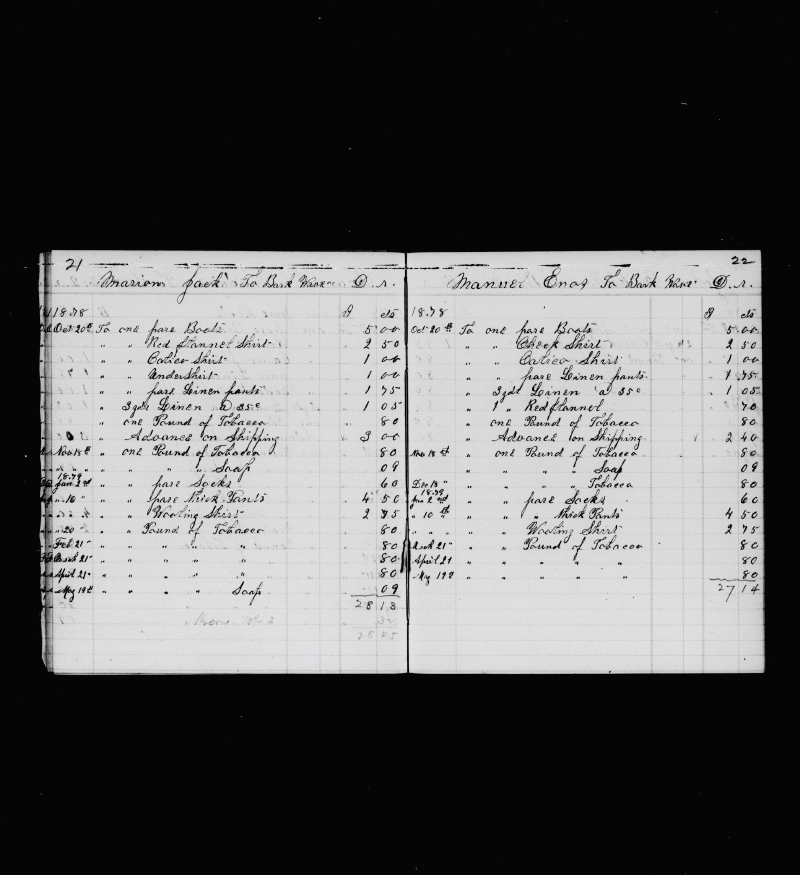 21
Marion Jack To Bark Wave D.r.
18.78 $ cts
Oct 20th To one pare Boots 5 00
" " " Red flannel Shirt 2 50
" " " Calico Shirt 1 00
" " " UnderShirt 1 00
" " pare Linen pants 1 75
" 3 yds Linen a 35c 1 05
" one Pound of Tobacco 80
" Advance on Shipping 3 00
Nov 18th " one Pound of Tobacco 80
" " " " " Soap 09
18.79
Jan 2nd " " pare Socks 60
" 10 " " " pare Thick Pants 4 50
" " " " Wooling Shirt 2 75
" 20 " " Pound of Tobacco 80
Feb 21 " " " " " " 80
March 21 " " " " " " 80
April 21 " " " " " " 80
May 19th " " " " Soap 09
28 13
32
28 45
22
Manuel Enos To Bark Wave D.r.
18.78 $ cts
Oct 20th To one pare Boots 5 00
" " " Check Shirt 2 50
" " " Calico Shirt 1 00
" " " pare Linen pants 1 75
" 3 yds Linen a 35c 1 05
" 1 " Red flannel 70
" one Pound of Tobacco 80
" Advance on Shipping 2 40
Nov 18th " one Pound of Tobacco 80
" " " " Soap 09
Dec 18 " " " " " Tobacco 80
18.79
Jan 2nd " " pare Socks 60
" 10th " " " Thick Pants 4 50
" " " " Wooling Shirt 2 75
March 21 " " " Pound of Tobacco 80
April 21 " " " " " 80
May 19th " " " " " 80
27 14